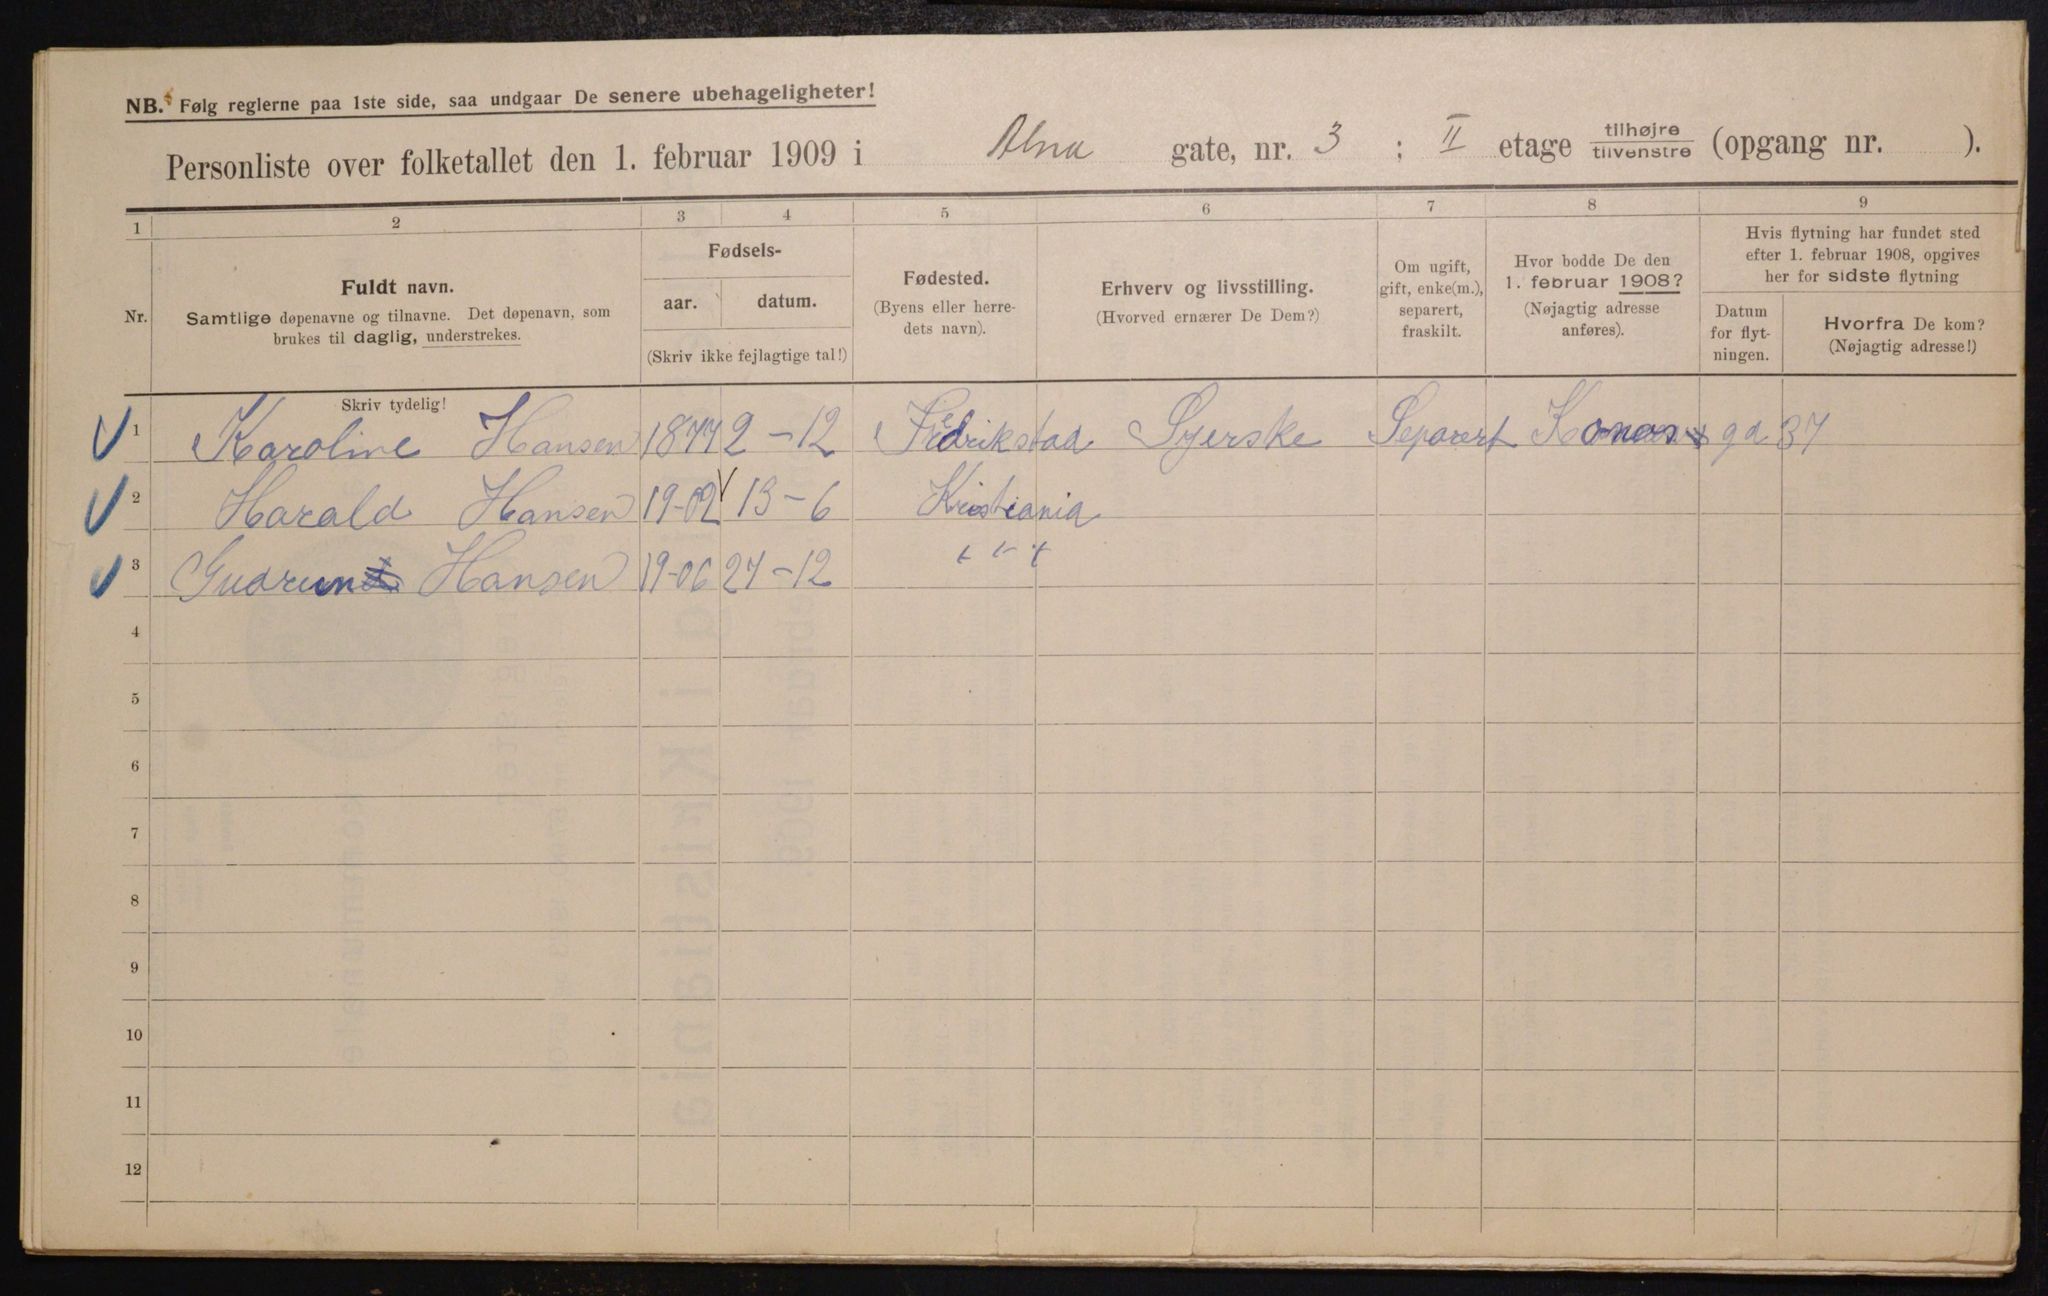 NB. Følg reglerne paa 1ste side, saa undgaar De senere ubehageligheter!
Personliste over folketallet den 1. februar 1909 i Alna gate, nr. 3 ; II etage tilhøjre/tilvenstre (opgang nr. ).
1 2 3 4 5 6 7 8 9
Nr.
Fuldt navn.
Samtlige døpenavne og tilnavne. Det døpenavn, som
brukes til daglig, understrekes.
Skriv tydelig!
Fødsels-
aar. datum.
(Skriv ikke fejlagtige tal!)
Fødested.
(Byens eller herre-
dets navn).
Erhverv og livsstilling.
(Hvorved ernærer De Dem?)
Om ugift,
gift, enke(m.),
separert,
fraskilt.
Hvor bodde De den
1. februar 1908?
(Nøjagtig adresse
anføres).
Hvis flytning har fundet sted
efter 1. februar 1908, opgives
her for sidste flytning
Datum
for flyt-
ningen.
Hvorfra De kom?
(Nøjagtig adresse!)
1 Karoline Hansen 1877 2-12 Fredrikstad Syerske Separert ga 37
2 Harald Hansen 19-02 13-6 Kristiania
3 Gudrun Hansen 19-06 27-12
4
5
6
7
8
9
10
11
12